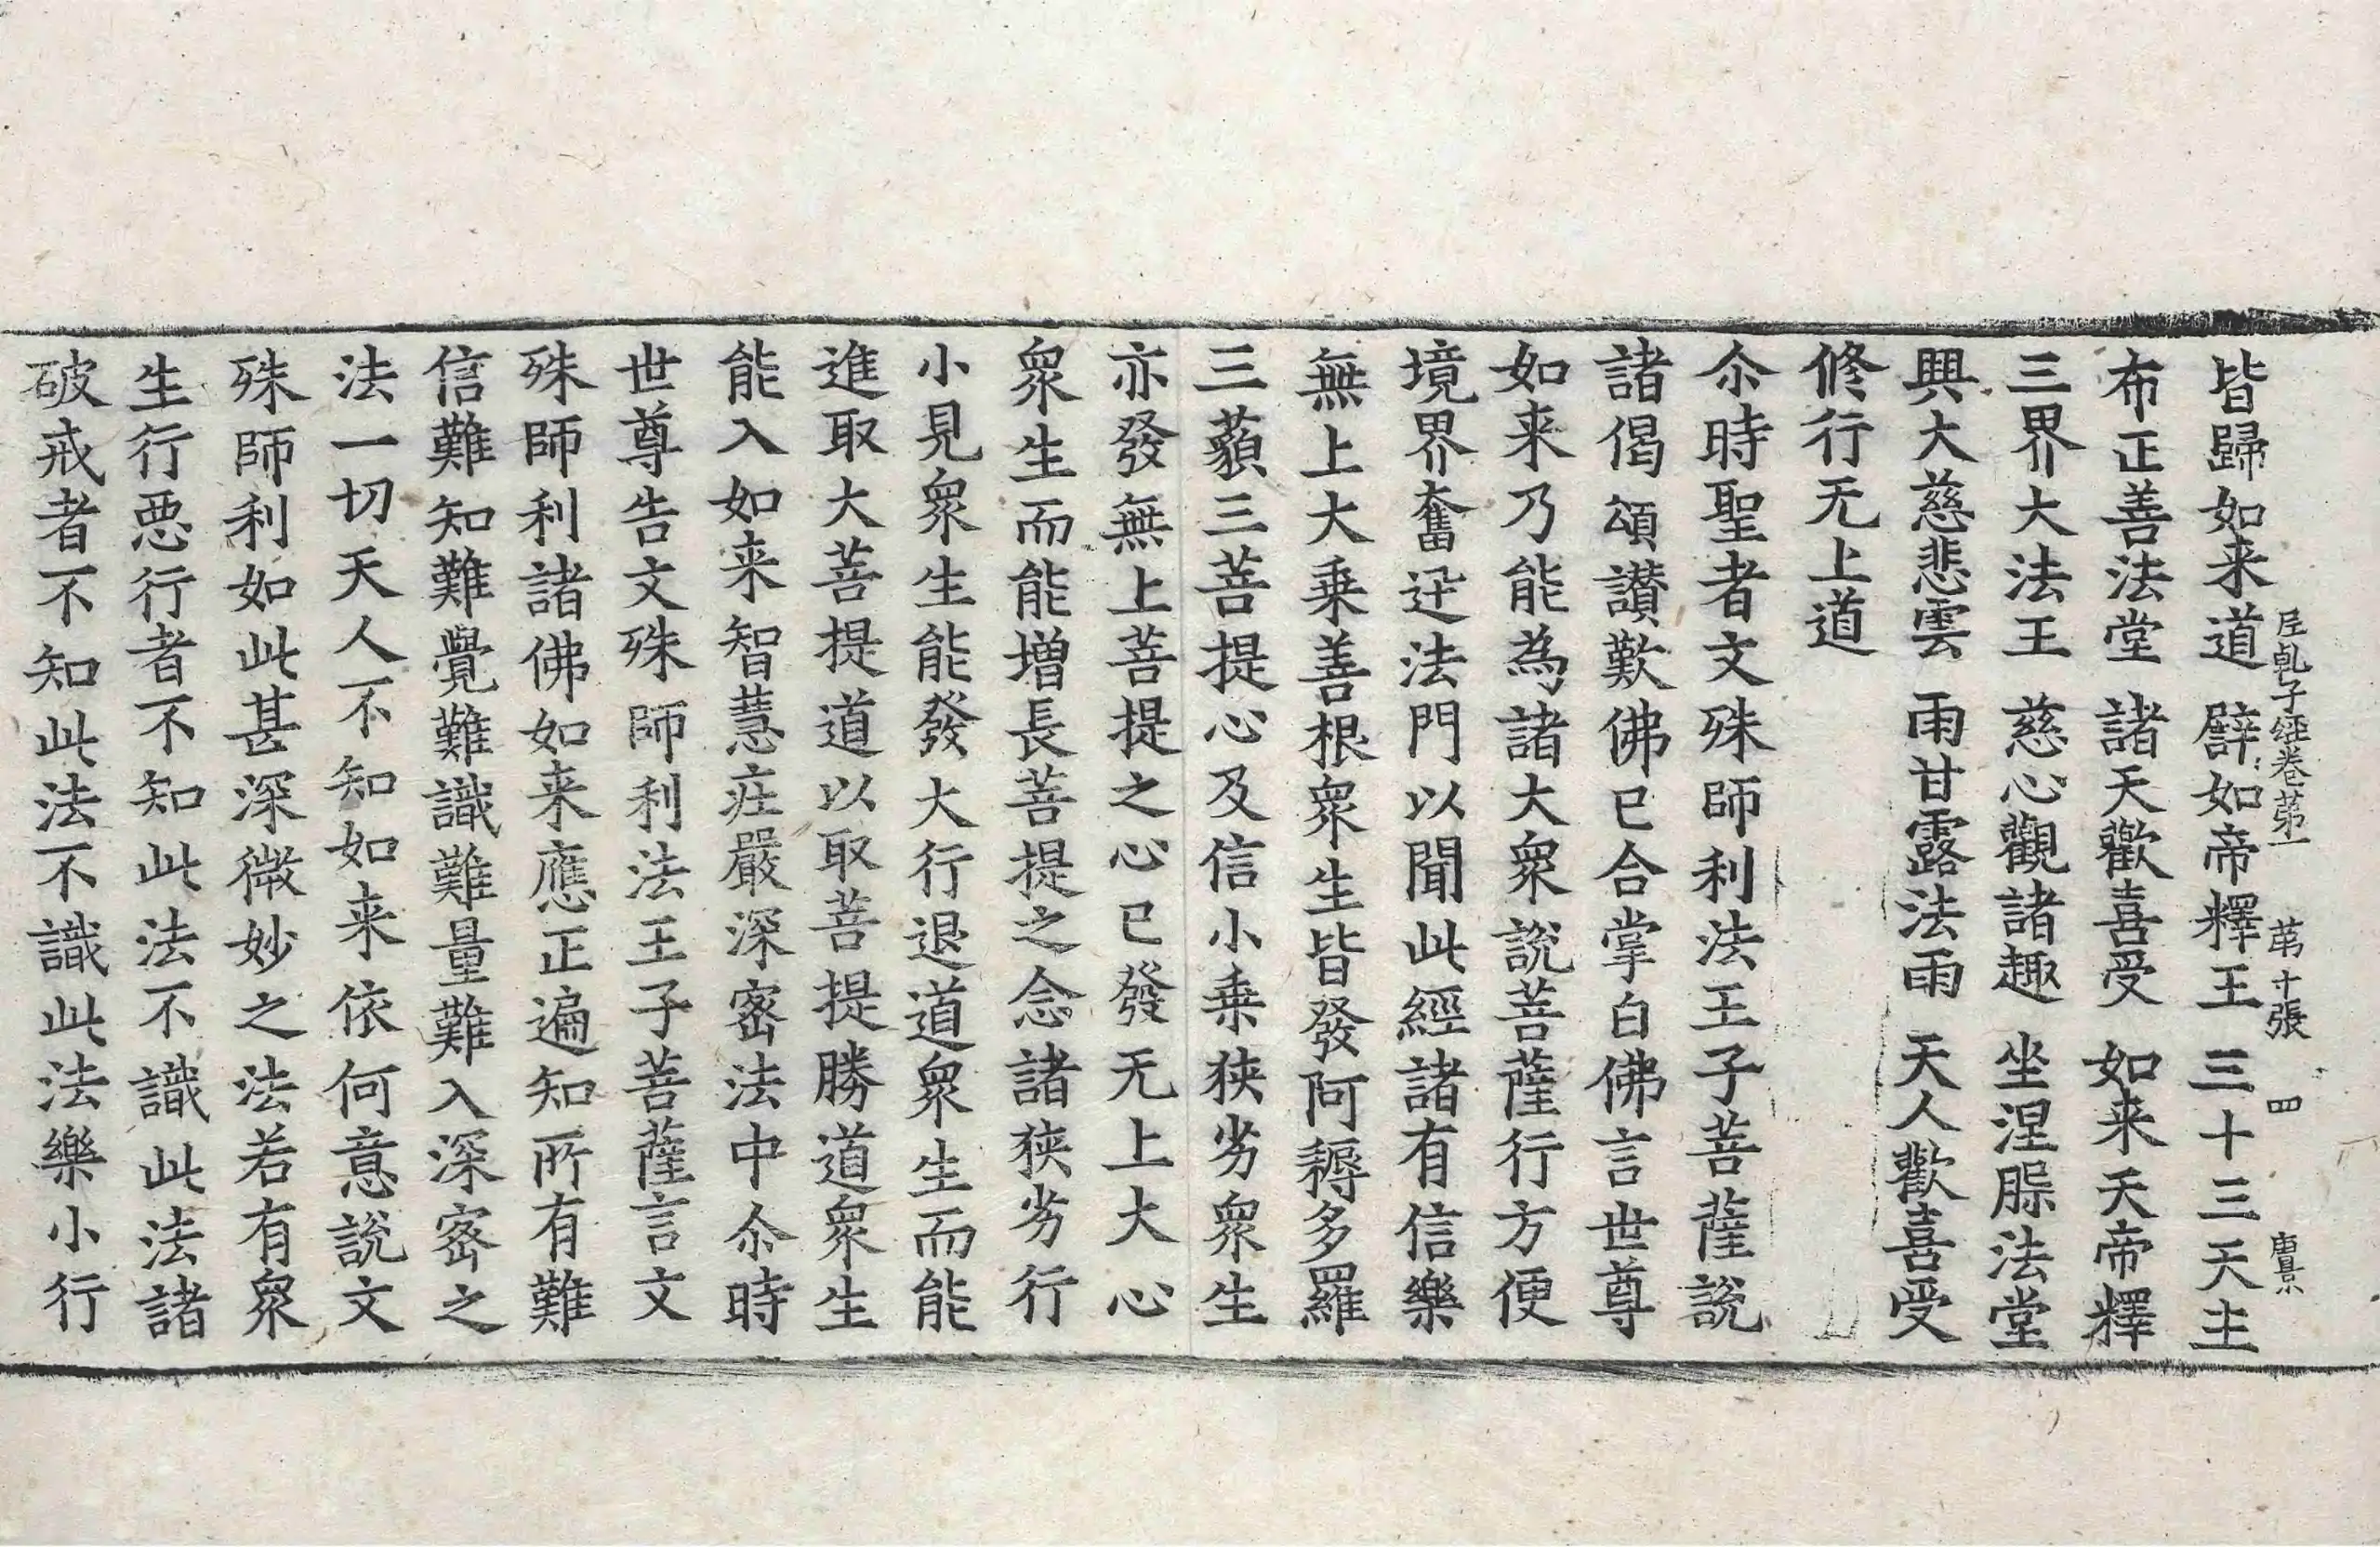 𡰱乹子經卷苐一　苐十張　四　唐景
皆歸如来道　譬如帝釋王　三十三天主
布正善法堂　諸天歡喜受　如来天帝釋
三界大法王　慈心觀諸趣　坐涅䏶法堂
興大慈悲雲　雨甘露法雨　天人歡喜受
修行无上道
尒時聖者文殊師利法王子菩薩說
諸偈頌讃歎佛已合掌白佛言世尊
如来乃能為諸大衆說菩薩行方便
境界奮迅法門以聞此經諸有信樂
無上大乗善根衆生皆發阿耨多羅
三藐三菩提心及信小乗狹劣衆生
亦發無上菩提之心已發无上大心
衆生而能增長菩提之念諸狹劣行
小見衆生能發大行退道衆生而能
進取大菩提道以取菩提勝道衆生
能入如来智慧莊嚴深密法中尒時
世尊告文殊師利法王子菩薩言文
殊師利諸佛如来應正遍知所有難
信難知難覺難識難量難入深密之
法一切天人不知如来依何意說文
殊師利如此甚深微妙之法若有衆
生行惡行者不知此法不識此法諸
破戒者不知此法不識此法樂小行